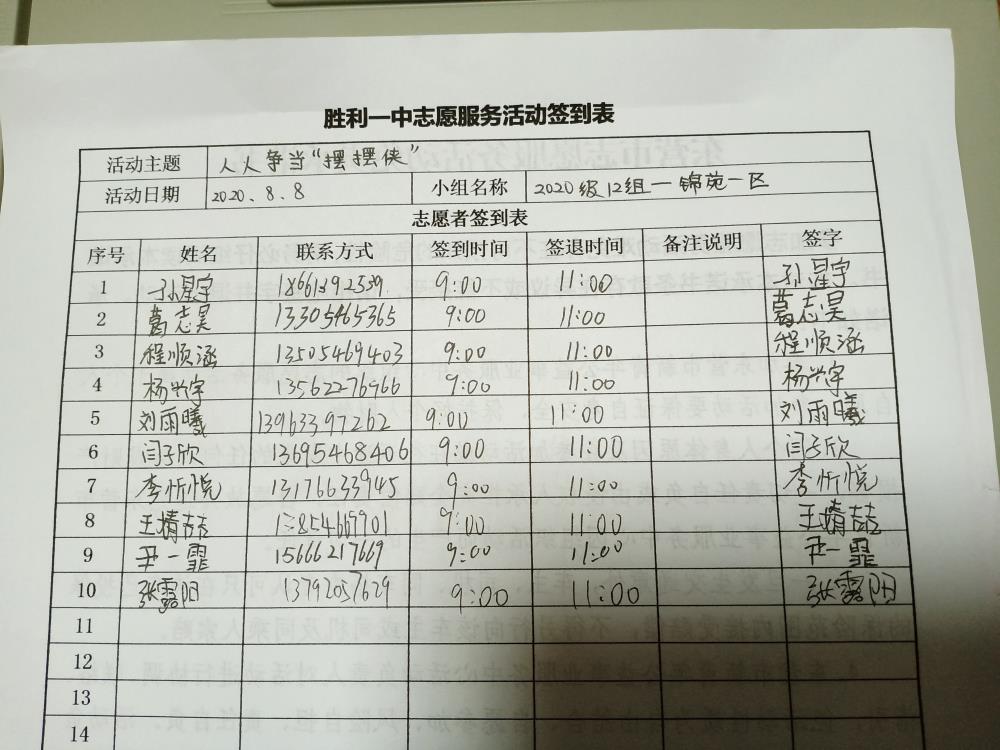 胜利一中志愿服务活动签到表
活动主题 人人争当“摆摆侠”
活动日期 2020.8.8 小组名称 2020级12组一锦苑一区
志愿者签到表
序号 姓名 联系方式 签到时间 签退时间 备注说明 签字
1 孙星宇 9:00 11:00 孙星宇
2 葛志昊 13305465365 9:00 11:00 葛志昊
3 程顺涵 13505469403 9:00 11:00 程顺涵
4 杨兴宇 13562276966 9:00 11:00 杨兴宇
5 刘雨曦 13963397262 9:00 11:00 刘雨曦
6 闫子欣 13695468406 9:00 11:00 闫子欣
7 李忻悦 13176633945 9:00 11:00 李忻悦
8 王婧喆 9:00 11:00 王婧喆
9 尹一霏 15666217669 9:00 11:00 尹一霏
10 张露阳 13792057629 9:00 11:00 张露阳
11
12
13
14